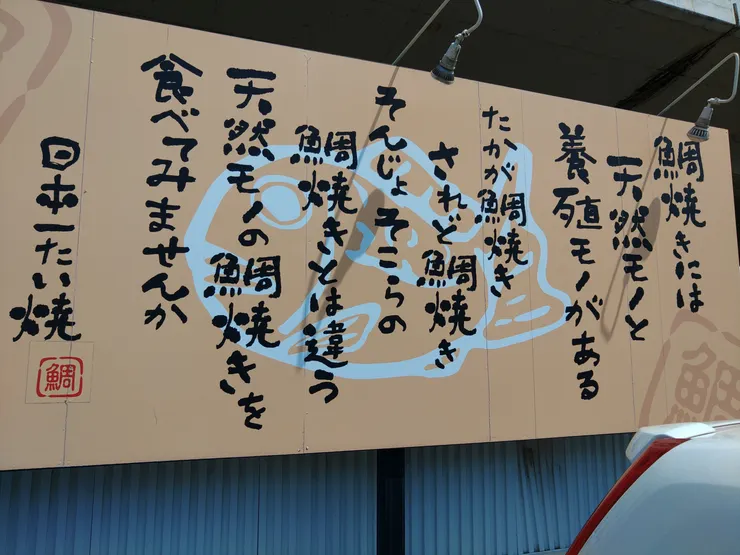 鯛焼きには
天然モノと
養殖モノがある
たかが鯛焼き
されど鯛焼き
そんじょそこらの
鯛焼きとは違う
天然モノの鯛焼きを
食べてみませんか
日本一たい焼
鯛
鯛